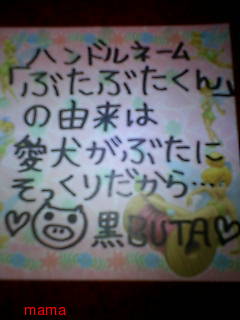 ハンドルネーム
「ぶたぶたくん」
の由来は
愛犬がぶたに
そっくりだから……
♡ 黒BUTA♡
mama